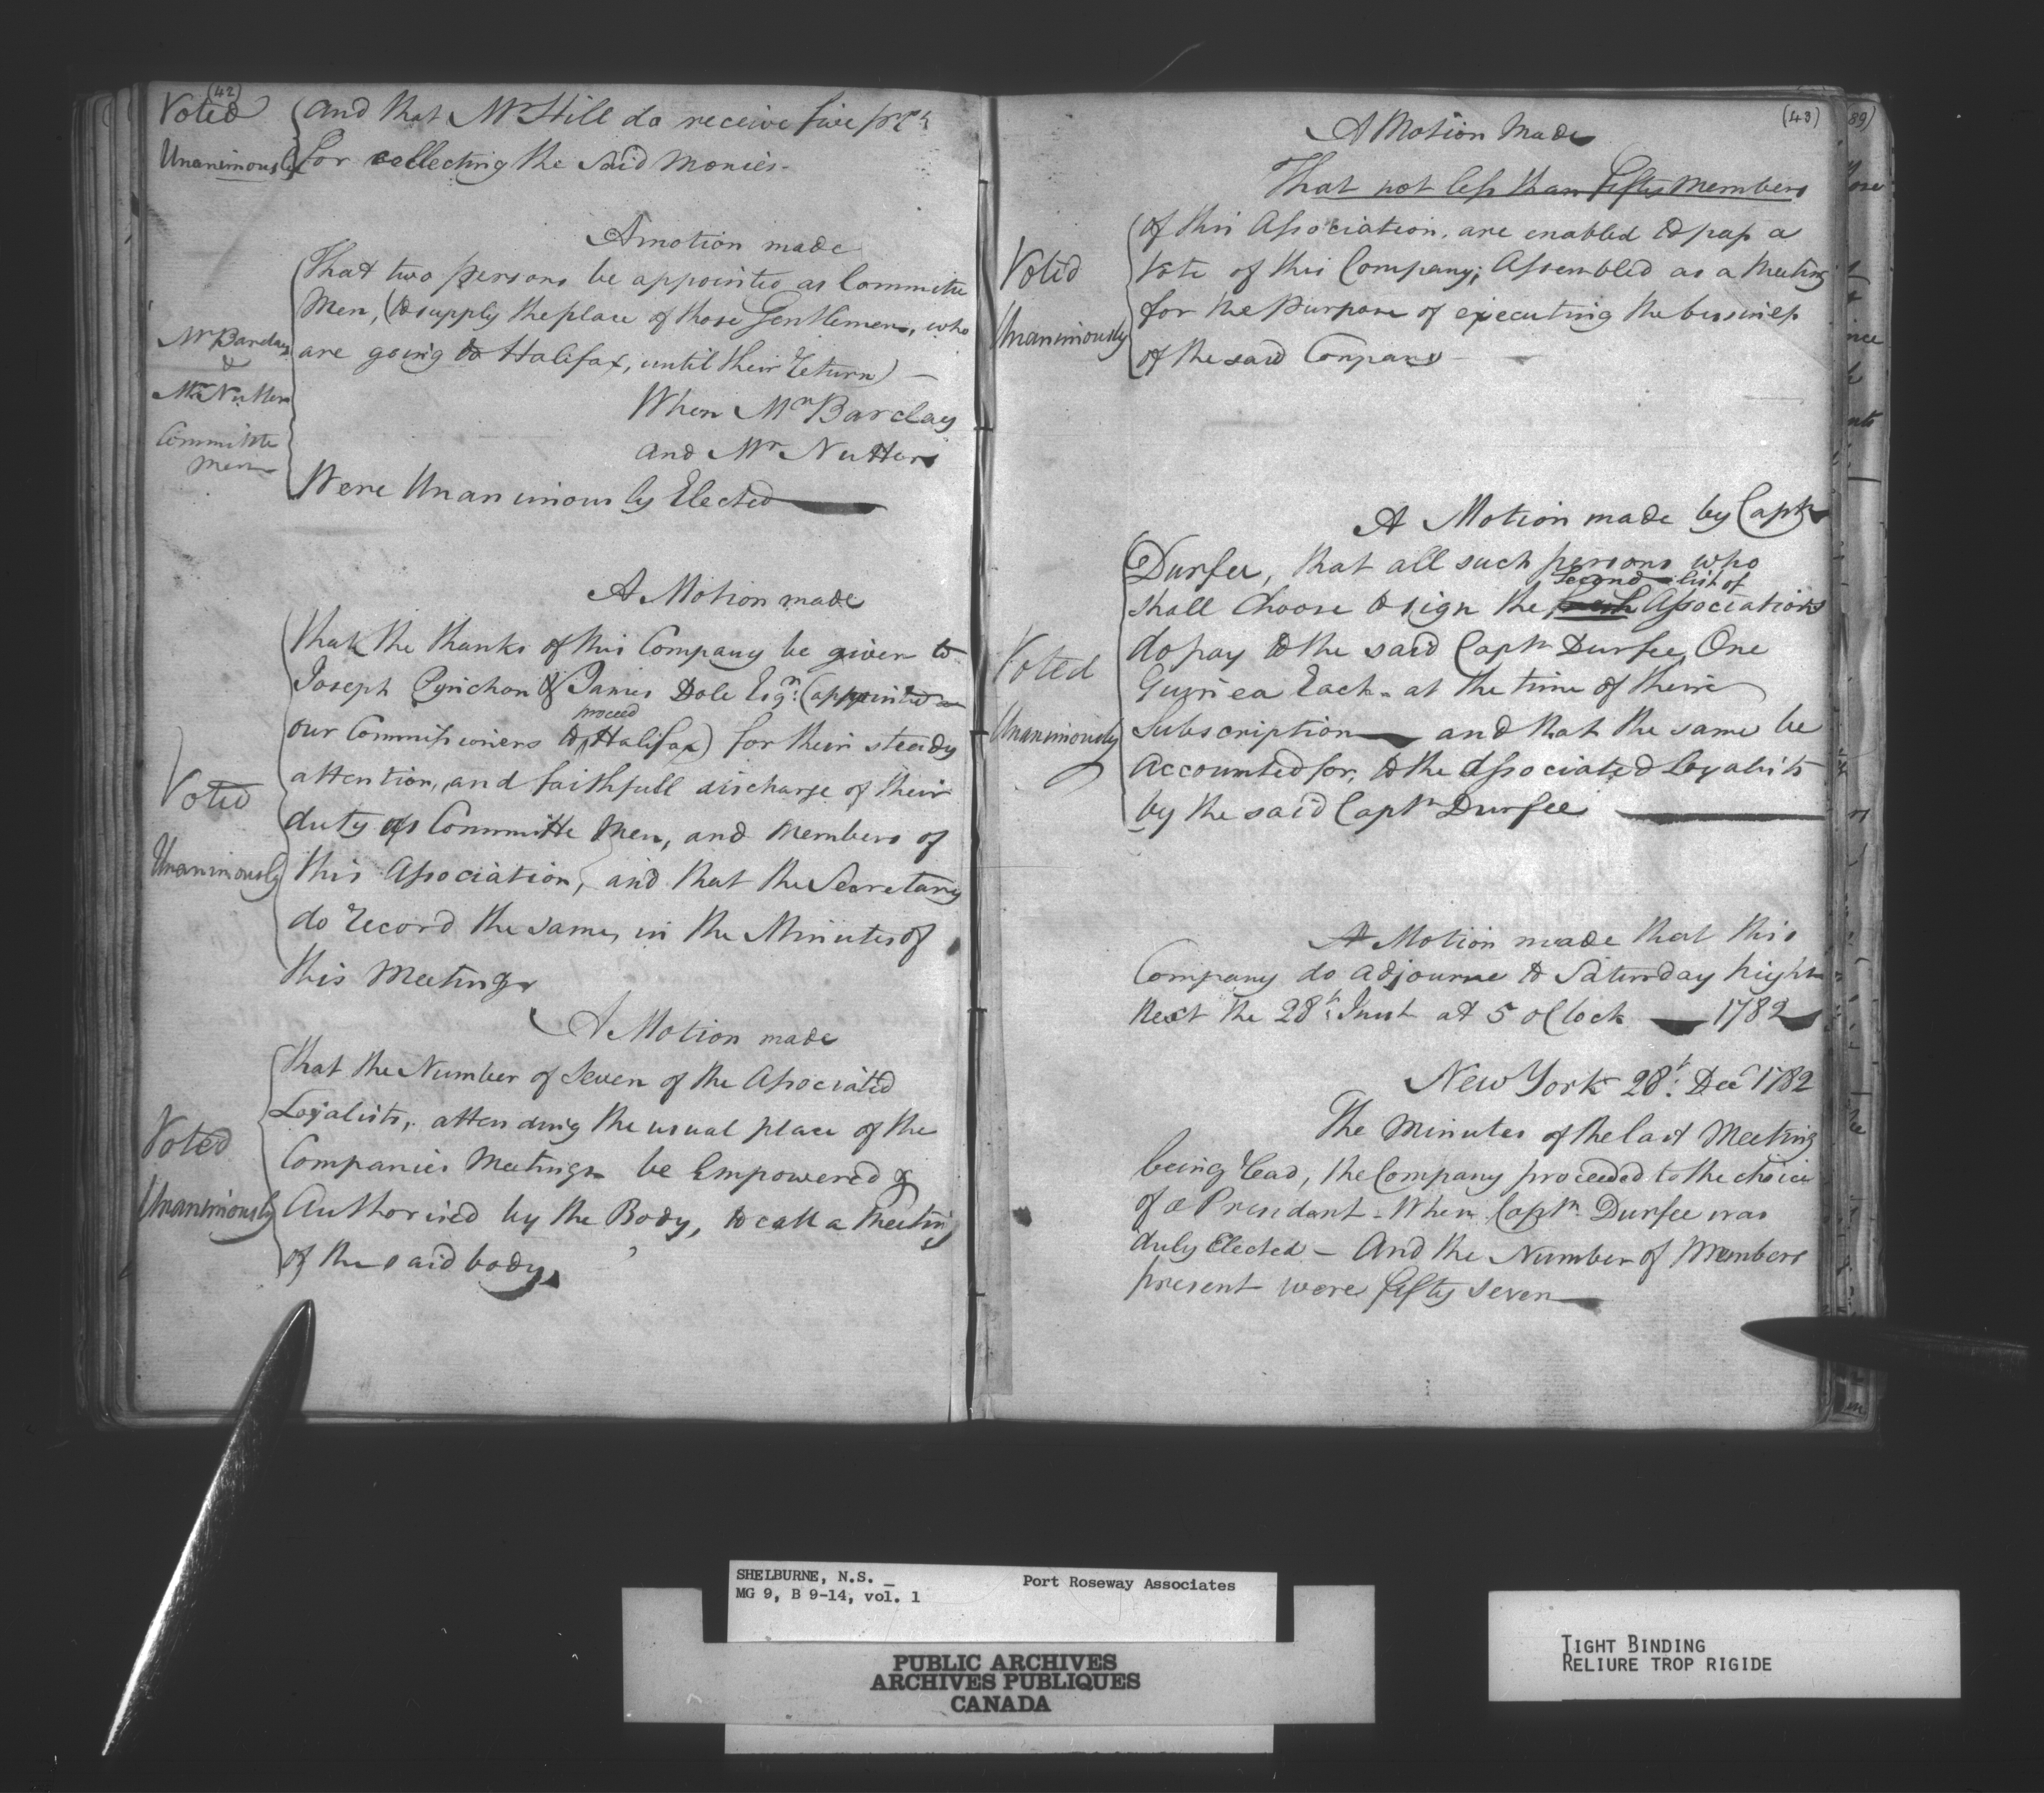 (42)
Voted
Unanimously
and that Mr Hill do receive five pr Ct
for collecting the said monies.
A motion made
That two persons be appointed as Committe
Men, (to supply the place of those Gentlemen, who
are going to Halifax, until their return) —
When Mr Barclay
and Mr Nutter
Were Unanimously Elected
Mr Barclay
&
Mr Nutter
Committe
men
A Motion made
that the thanks of this Company be given to
Joseph Pynchon & James Dole Esqrs: (appointed as
our Commissioners to proceed Halifax) for their steady
attention, and faithfull discharge of their
duty as Committe Men, and Members of
this Association, and that the Secretary
do record the same, in the Minutes of
this Meeting
Voted
Unanimously
A Motion made
that the Number of Seven of the Associated
Loyalists, attending the usual place of the
Companies Meetings be Empowered &
Authorised by the Body, to call a Meeting
of the said body
Voted
Unanimously
(43)
A Motion Made
That not less than fifty Members
of this Association, are enabled to pass a
Vote of this Company; Assembled as a Meeting
for the Purpose of executing the bussiness
of the said Company
Voted
Unanimously
A Motion made by Captn
Durfee, that all such persons who
second list of
shall Choose to sign the Associations
do pay to the said Captn Durfee, One
Guinea Each - at the time of their
Subscription — and that the same be
accounted for, to the Associated Loyalists
by the said Captn Durfee
Voted
Unanimously
A Motion made that this
Company do adjourne to Saturday night
Next the 28th: Inst at 5 oClock — 1782
New York 28th: Decr 1782
The Minutes of the last Meeting
being read, the Company proceeded to the choice
of a President - When Captn Durfee was
duly Elected — And the Number of Members
present were fifty seven
(89)
SHELBURNE, N.S.
Port Roseway Associates
MG 9, B 9-14, vol. 1
PUBLIC ARCHIVES
ARCHIVES PUBLIQUES
CANADA
TIGHT BINDING
RELIURE TROP RIGIDE